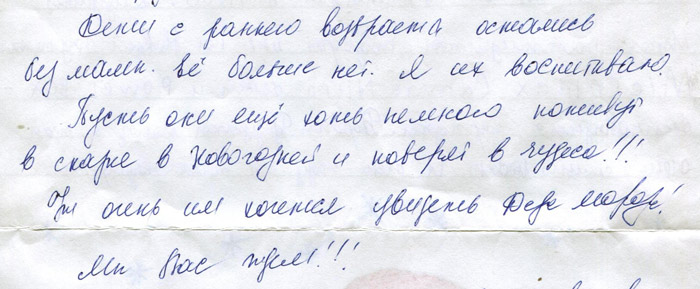 Дети с раннего возраста остались
без мамы. Её больше нет. Я их воспитываю.
Пусть они ещё хоть немного поживут
в сказке в Новогодней и поверят в чудеса!!!
очень им хочется увидеть Деда Мороза!
Мы Вас ждём!!!